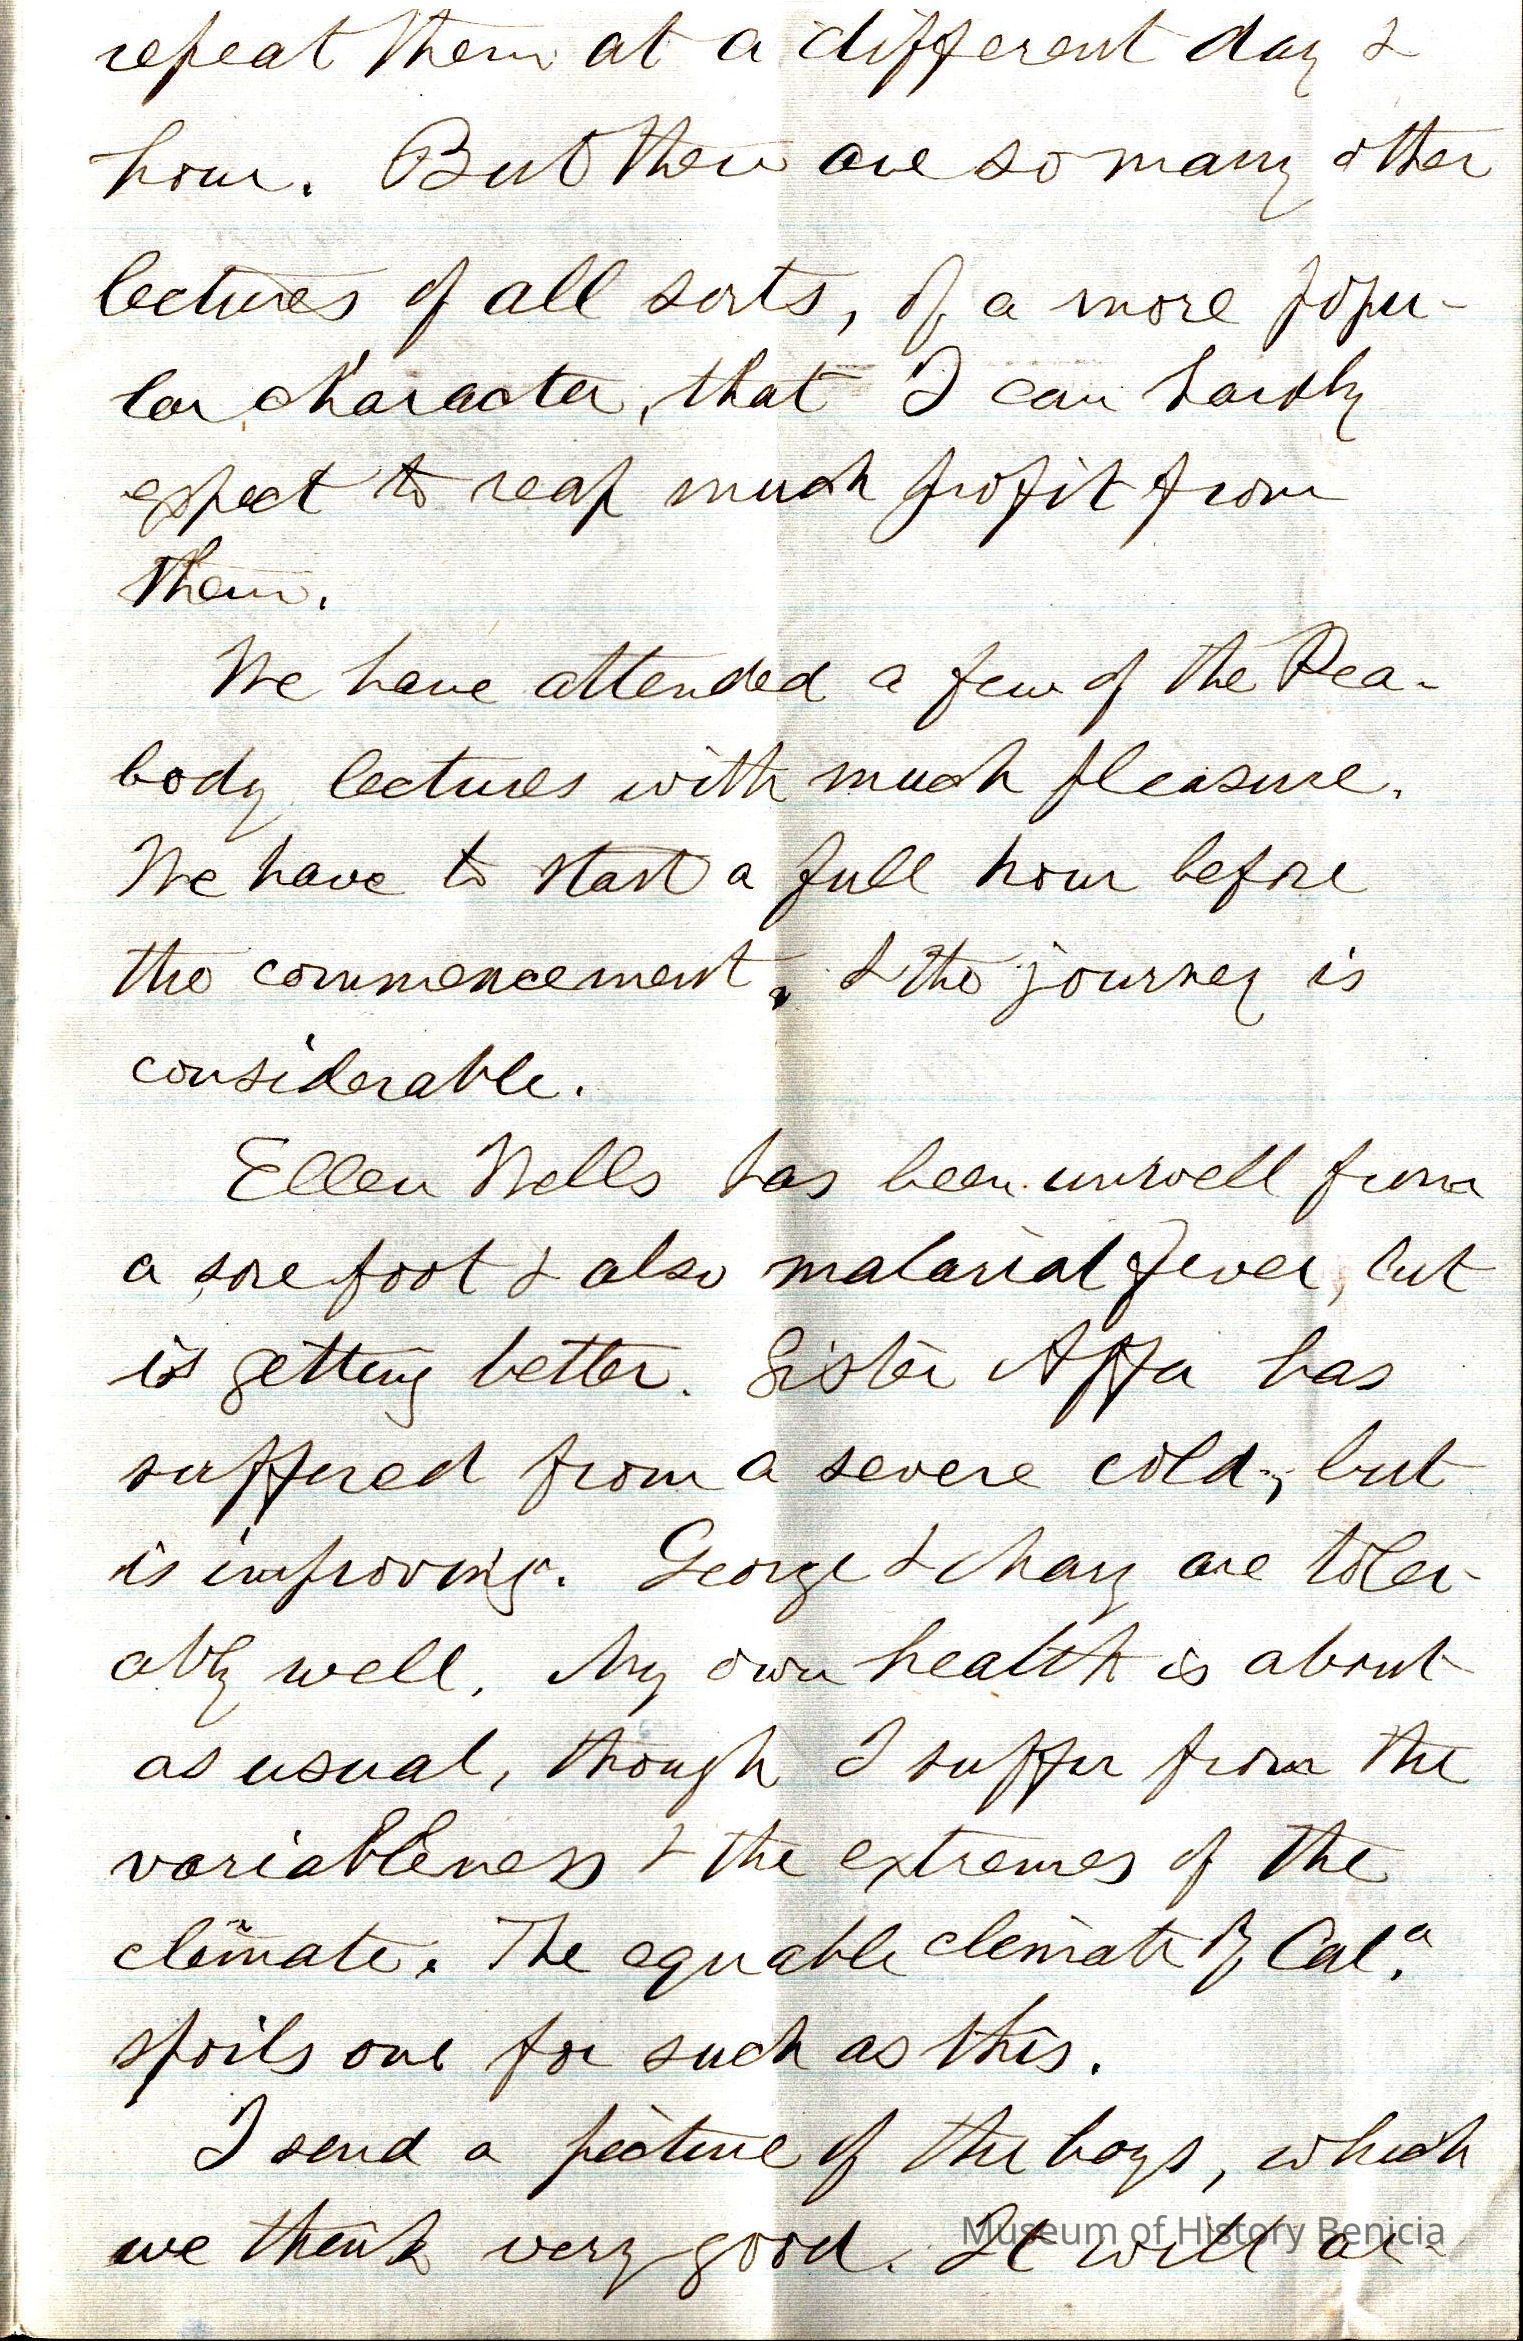 repeat them at a different day &
hour. But there are so many other
lectures of all sorts, of a more popu-
lar character, that I can hardly
expect to reap much profit from
them.
We have attended a few of the Pea-
body lectures with much pleasure.
We have to start a full hour before
the commencement, & the journey is
considerable.
Ellen Wells has been unwell from
a sore foot & also malarial fever, but
is getting better. Sister Affa has
suffered from a severe cold, but
is improving. George & Mary are toler-
ably well. My own health is about
as usual, though I suffer from the
variableness & the extremes of the
climate. The equable climate of Cala.
spoils one for such as this.
I send a picture of the boys, which
we think very good. It will ar-
Museum of History Benicia